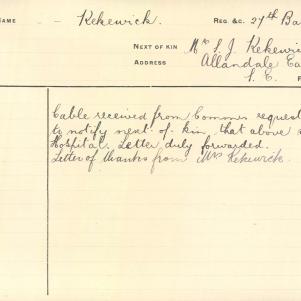 NAME - Kekewick. REG. &C. 27th Ba
NEXT OF KIN Mrs S. J. Kekewic
ADDRESS Allandale Ea
S. E.
Cable received from Commns request
to notify next-of-kin, that above
Hospital. Letter duly forwarded.
Letter of thanks from Mrs Kekewick.